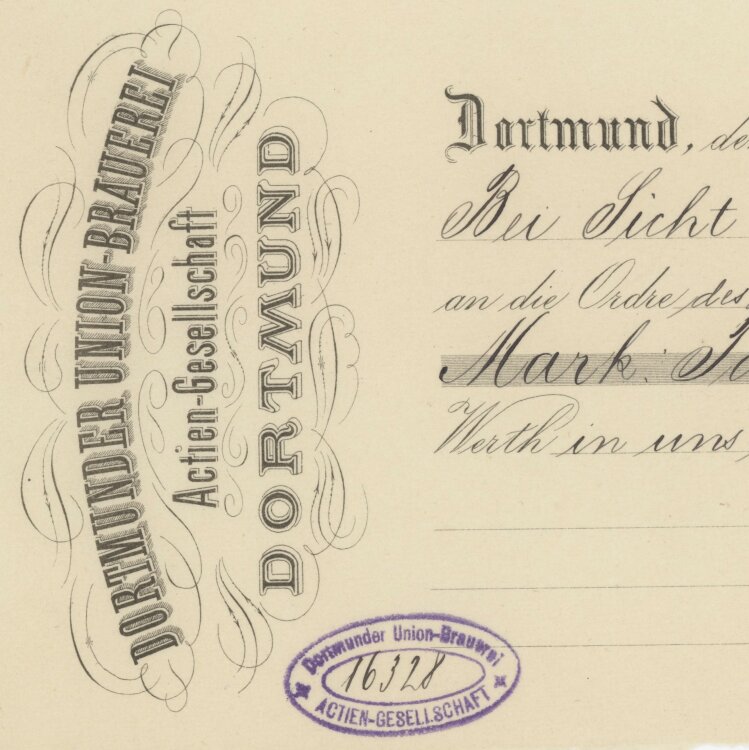 DORTMUNDER UNION-BRAUEREI
Actien-Gesellschaft
DORTMUND
Dortmund,
Bei Sicht
an die Ordre des
Mark:
Werth in uns
Dortmunder Union-Brauerei
16328
ACTIEN-GESELLSCHAFT